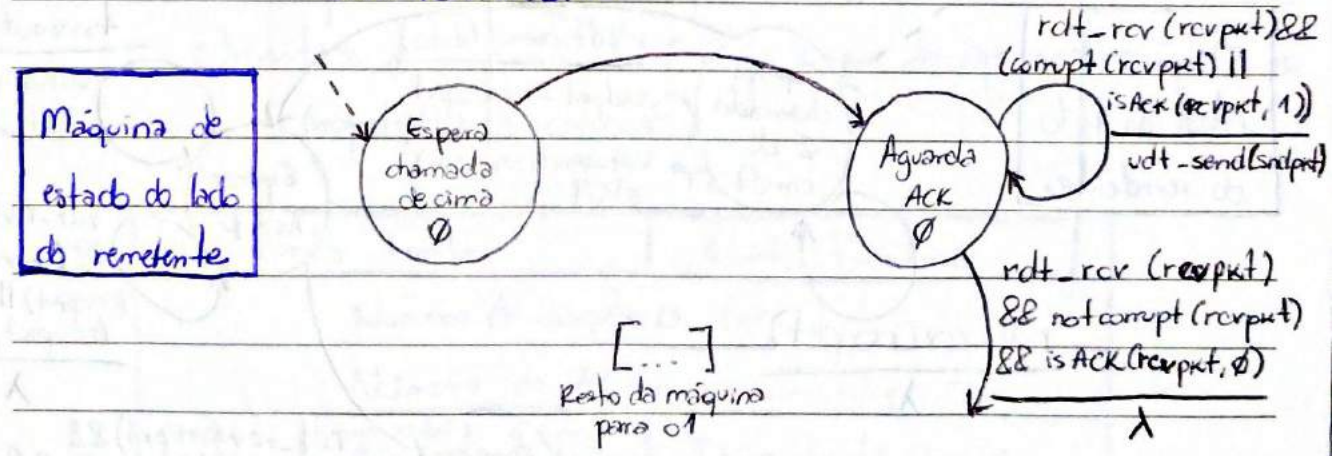 Máquina de
estado do lado
do remetente
Espera
chamada
de cima
0
Aguarda
ACK
0
rdt_rcv (rcvpkt) &&
(corrupt (rcvpkt) ||
isAck (rcvpkt, 1))
udt_send(sndpkt)
rdt_rcv (rcvpkt)
&& notcorrupt (rcvpkt)
&& isACK (rcvpkt, 0)
λ
[...]
Resto da máquina
para o 1